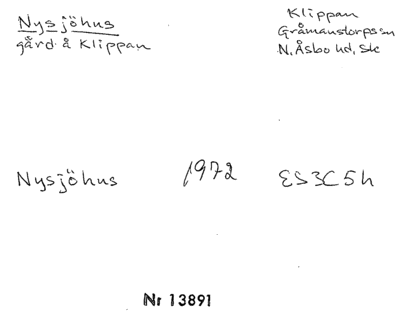 Nysjöhus
gård å Klippan
Klippan
Gråmanstorps sn
N. Åsbo hd, Sk
Nysjöhus 1972 ES3C5h
Nr 13891